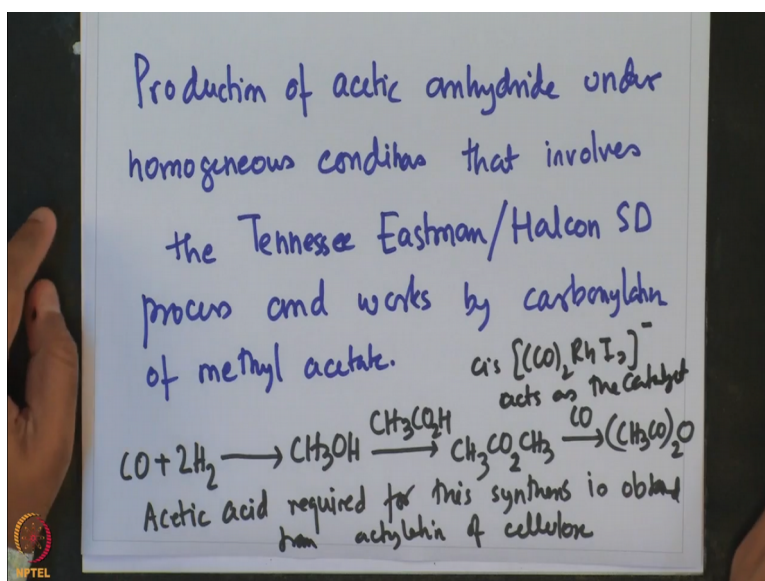 Production of acetic anhydride under
homogeneous conditins that involves
the Tennessee Eastman/Halcon SD
process and works by carbonylatin
of methyl acetate.
cis [(CO)₂RhI₂]⁻
acts as the catalyst
CO + 2H₂ ⟶ CH₃OH ⟶ CH₃CO₂H CH₃CO₂CH₃ ⟶ CO (CH₃CO)₂O
Acetic acid required for this synthesis is obtaind
from actylatin of cellulose
NPTEL